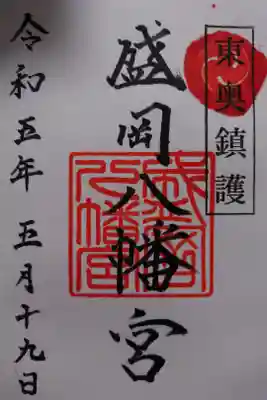 東奥鎮護
盛岡八幡宮
令和五年五月十九日